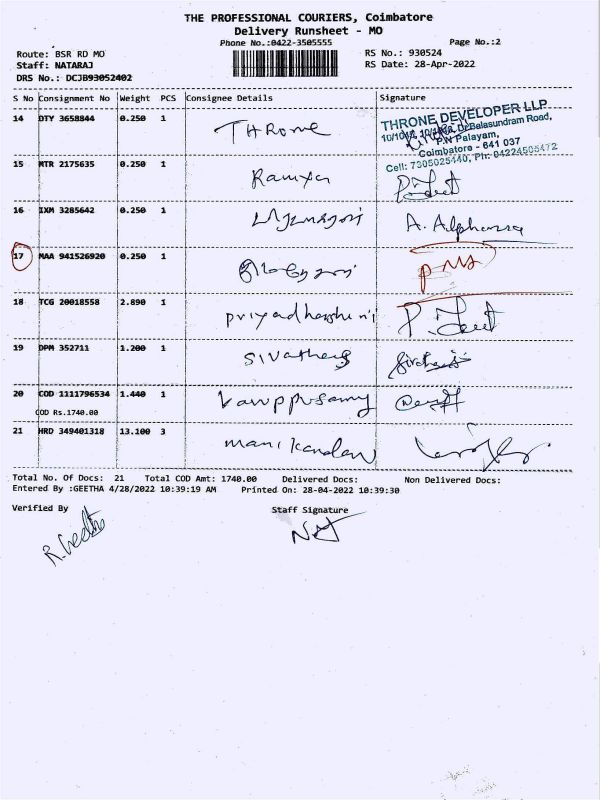 THE PROFESSIONAL COURIERS, Coimbatore
Delivery Runsheet - MO
Phone No.:0422-3505555
Page No.:2
Route: BSR RD MO
RS No.: 930524
Staff: NATARAJ
RS Date: 28-Apr-2022
DRS No.: DCJB93052402
S No Consignment No Weight PCS Consignee Details Signature
14 DTY 3658844 0.250 1 Throne
THRONE DEVELOPER LLP
Dr.Balasundram Road,
P.N Palayam,
Coimbatore - 641 037
Cell: 7305025440, Ph: 04224505472
15 MTR 2175635 0.250 1 Ramya
16 IXM 3285642 0.250 1 A. Alphonsa
17 MAA 941526920 0.250 1
18 TCG 20018558 2.890 1 priyadharshini
19 DPM 352711 1.200 1
20 COD 1111796534 1.440 1 karuppusamy
COD Rs.1740.00
21 HRD 349401318 13.100 3 manikandan
Total No. Of Docs: 21 Total COD Amt: 1740.00 Delivered Docs: Non Delivered Docs:
Entered By :GEETHA 4/28/2022 10:39:19 AM Printed On: 28-04-2022 10:39:30
Verified By
Staff Signature
R. Geetha